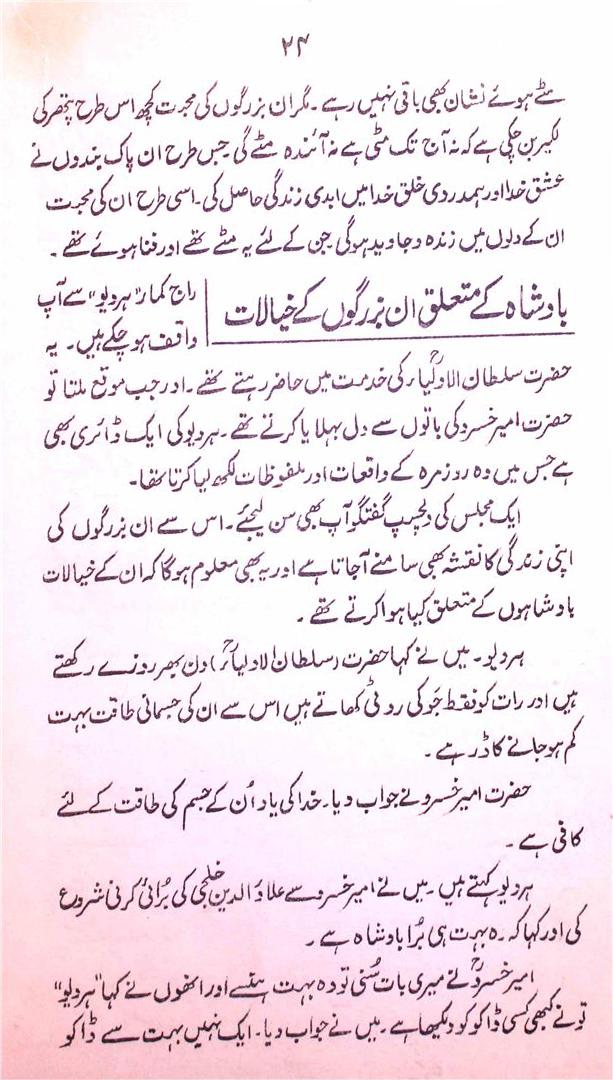 ۲۴
مٹے ہوئے نشان بھی باقی نہیں رہے۔ مگر ان بزرگوں کی محبت کچھ اس طرح پتھر کی
لکیر بن چکی ہے کہ نہ آج تک مٹی ہے نہ آئندہ مٹے گی جس طرح ان پاک بندوں نے
عشق خدا اور ہمدردی خلق خدا میں ابدی زندگی حاصل کی۔ اسی طرح ان کی محبت
ان کے دلوں میں زندہ و جاوید ہوگی جن کے لئے یہ مٹے تھے اور فنا ہوئے تھے۔
بادشاہ کے متعلق ان بزرگوں کے خیالات
راج کمار "ہردیو" سے آپ
واقف ہو چکے ہیں۔ یہ
حضرت سلطان الاولیاءؒ کی خدمت میں حاضر رہتے تھے۔ اور جب موقع ملتا تو
حضرت امیر خسرو کی باتوں سے دل بہلایا کرتے تھے۔ ہردیو کی ایک ڈائری بھی
ہے جس میں وہ روزمرہ کے واقعات اور ملفوظات لکھ لیا کرتا تھا۔
ایک مجلس کی دلچسپ گفتگو آپ بھی سن لیجئے۔ اس سے ان بزرگوں کی
اپنی زندگی کا نقشہ بھی سامنے آجاتا ہے اور یہ بھی معلوم ہوگا کہ ان کے خیالات
بادشاہوں کے متعلق کیا ہوا کرتے تھے۔
ہردیو۔ میں نے کہا حضرت (سلطان الاولیاءؒ) دن بھر روزے رکھتے
ہیں اور رات کو فقط جَو کی روٹی کھاتے ہیں اس سے ان کی جسمانی طاقت بہت
کم ہو جانے کا ڈر ہے۔
حضرت امیر خسرو نے جواب دیا۔ خدا کی یاد اُن کے جسم کی طاقت کے لئے
کافی ہے۔
ہردیو کہتے ہیں۔ میں نے امیر خسرو سے علاؤ الدین خلجی کی بُرائی کرنی شروع
کی اور کہا کہ وہ بہت ہی بُرا بادشاہ ہے۔
امیر خسروؒ نے میری بات سُنی تو وہ بہت ہنسے اور انھوں نے کہا "ہردیو"
تونے کبھی کسی ڈاکو کو دیکھا ہے۔ میں نے جواب دیا۔ ایک نہیں بہت سے ڈاکو